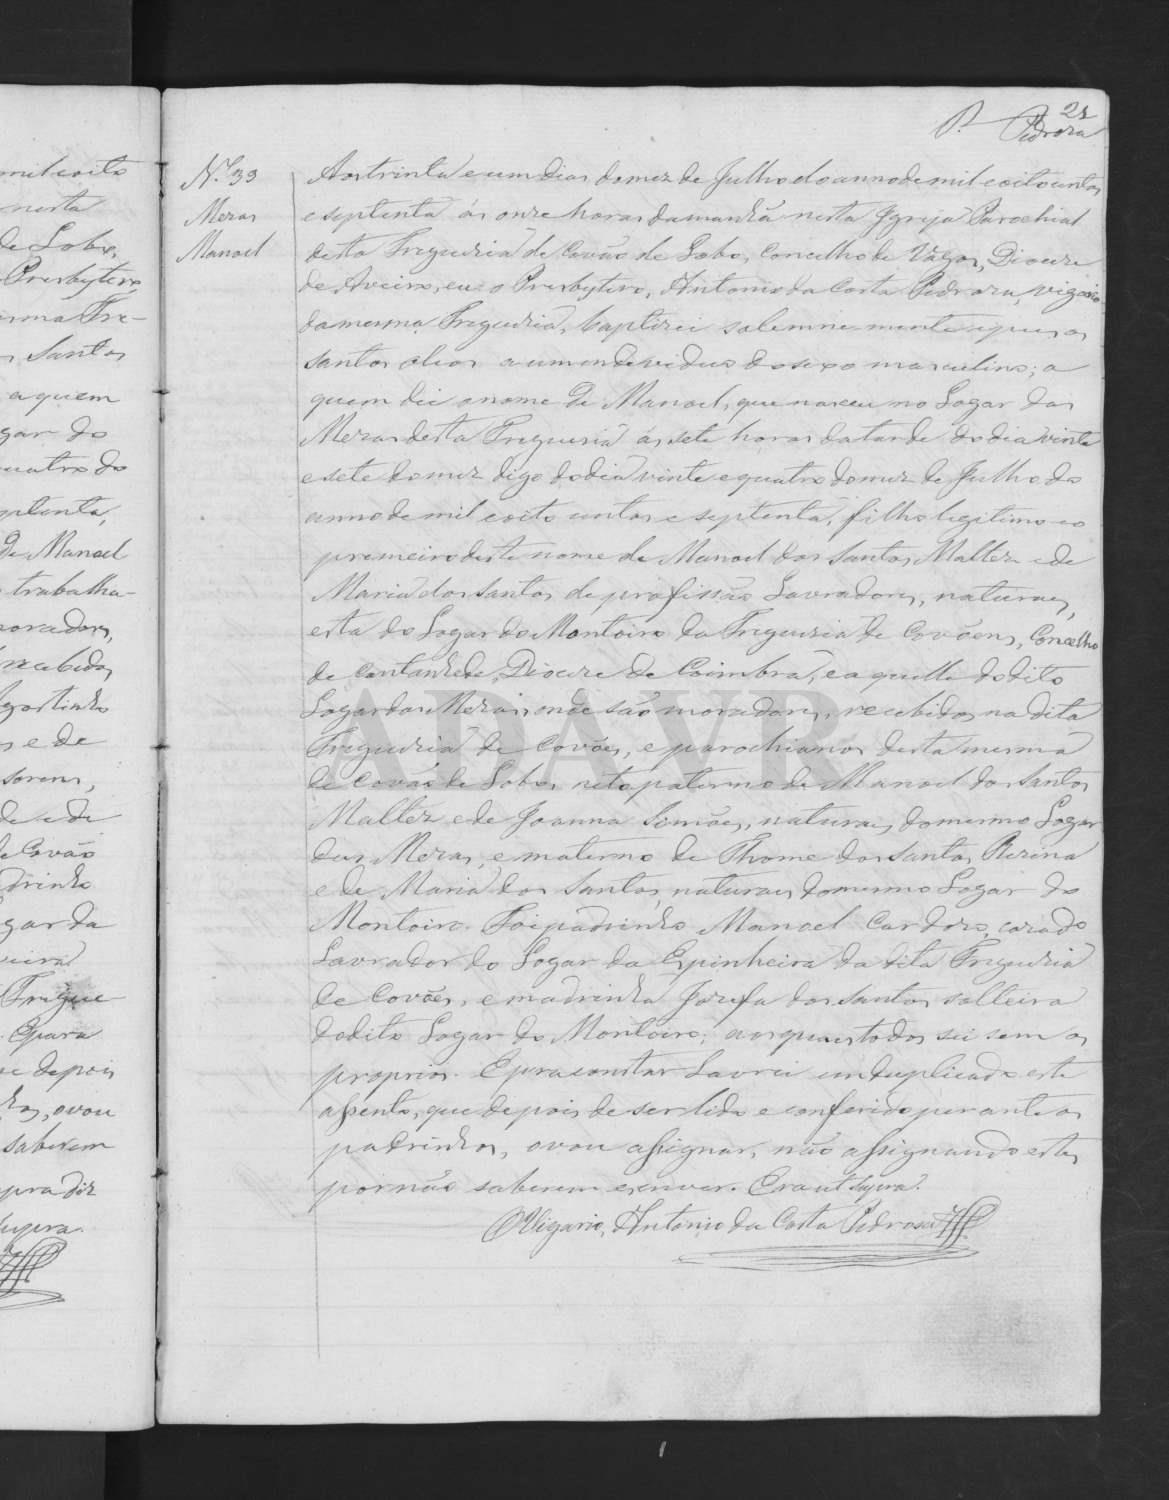 mil eoito
nesta
de Lobo,
Presbytero,
esma Fre-
Santos
a quem
gar do
uatro do
ptenta,
de Manoel
trabalha-
moradores,
recebidos
Agostinho
s e de
de e de
de Covão
drinho
gar da
Fregue
E para
e depois
ovou
saberem
supra.
P. 21
Pedroza
N.º 33
Mezas
Manoel
Aos trinta e um dias do mez de Julho do anno de mil e oito centos
e septenta ás onze horas da manhã nesta Igreja Parochial
desta Freguezia de Covão de Lobo, Concelho de Vagos, Dioceze
de Aveiro, eu o Presbytero, Antonio da Costa Pedroza, vigario
da mesma Freguezia, baptizei solemne mente e puz os
santos oleos a um endeviduo do sexo masculino; a
quem dei o nome de Manoel, que nasceu no Logar das
Mezas desta Freguezia ás sete horas da tarde do dia vinte
e sete do mez digo do dia vinte e quatro do mez de Julho do
anno de mil e oito centos e septenta, filho legitimo e o
premeiro deste nome de Manoel dos Santos Maltez e de
Maria dos Santos de profissão Lavradores, naturaes,
esta do Logar do Montoiro da Freguezia de Covões, Concelho
de Cantanhede, Dioceze de Coimbra, e aquelle do dito
Logar das Mezas, onde são moradores, recebidos na dita
Freguezia de Covões, e parochianos desta mesma
de Covão de Lobo, neto paterno de Manoel dos Santos
Maltez e de Joanna Simões, naturaes do mesmo Logar
das Mezas, e materno de Thome dos Santos Rezina
e de Maria dos Santos, naturaes do mesmo Logar do
Montoiro. Foi padrinho Manoel Cardozo, cazado
Lavrador do Logar da Espinheira da dita Freguezia
de Covões, e madrinha Jozefa dos Santos solteira
do dito Logar do Montoiro; aos quaes todos sei sem os
proprios. E pra constar Lavrei em duplicado este
assento, que depois de ser lido e conferido perante os
padrinhos, o vou assignar, não assignando estes
por não saberem escrever. Era ut supra.
O Vigario, Antonio da Costa Pedroza
ADAVR